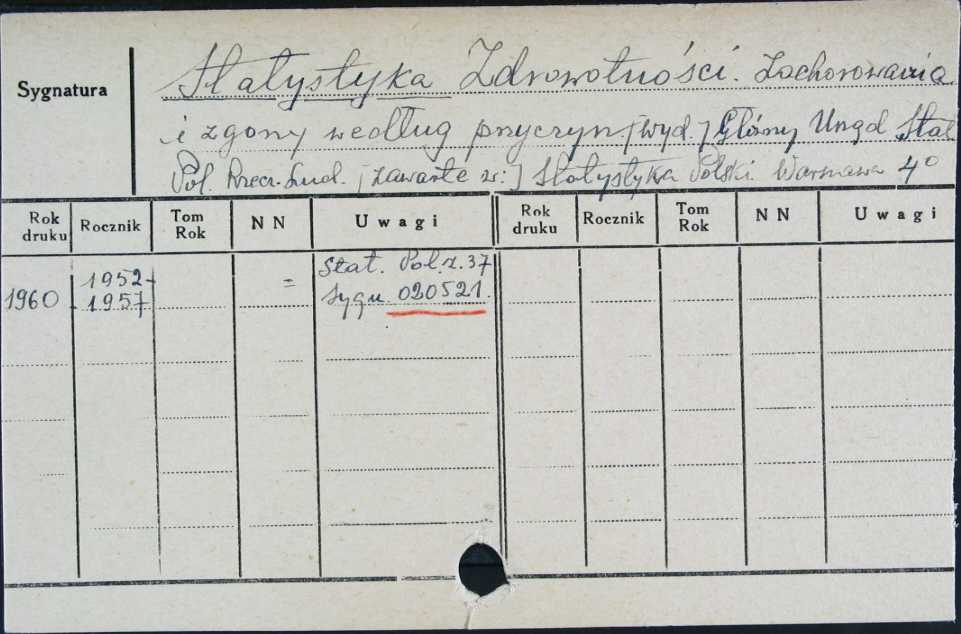 Sygnatura
Statystyka Zdrowotności. Zachorowania
i zgony według przyczyn [wyd.] Główny Urząd Stat.
Pol. Rzecz. Lud. [zawarte w:] Statystyka Polski. Warszawa 4°
Rok druku Rocznik Tom Rok NN Uwagi Rok druku Rocznik Tom Rok NN Uwagi
1960 1952- = Stat. Pol. z. 37
-1957 Sygn. 020521.